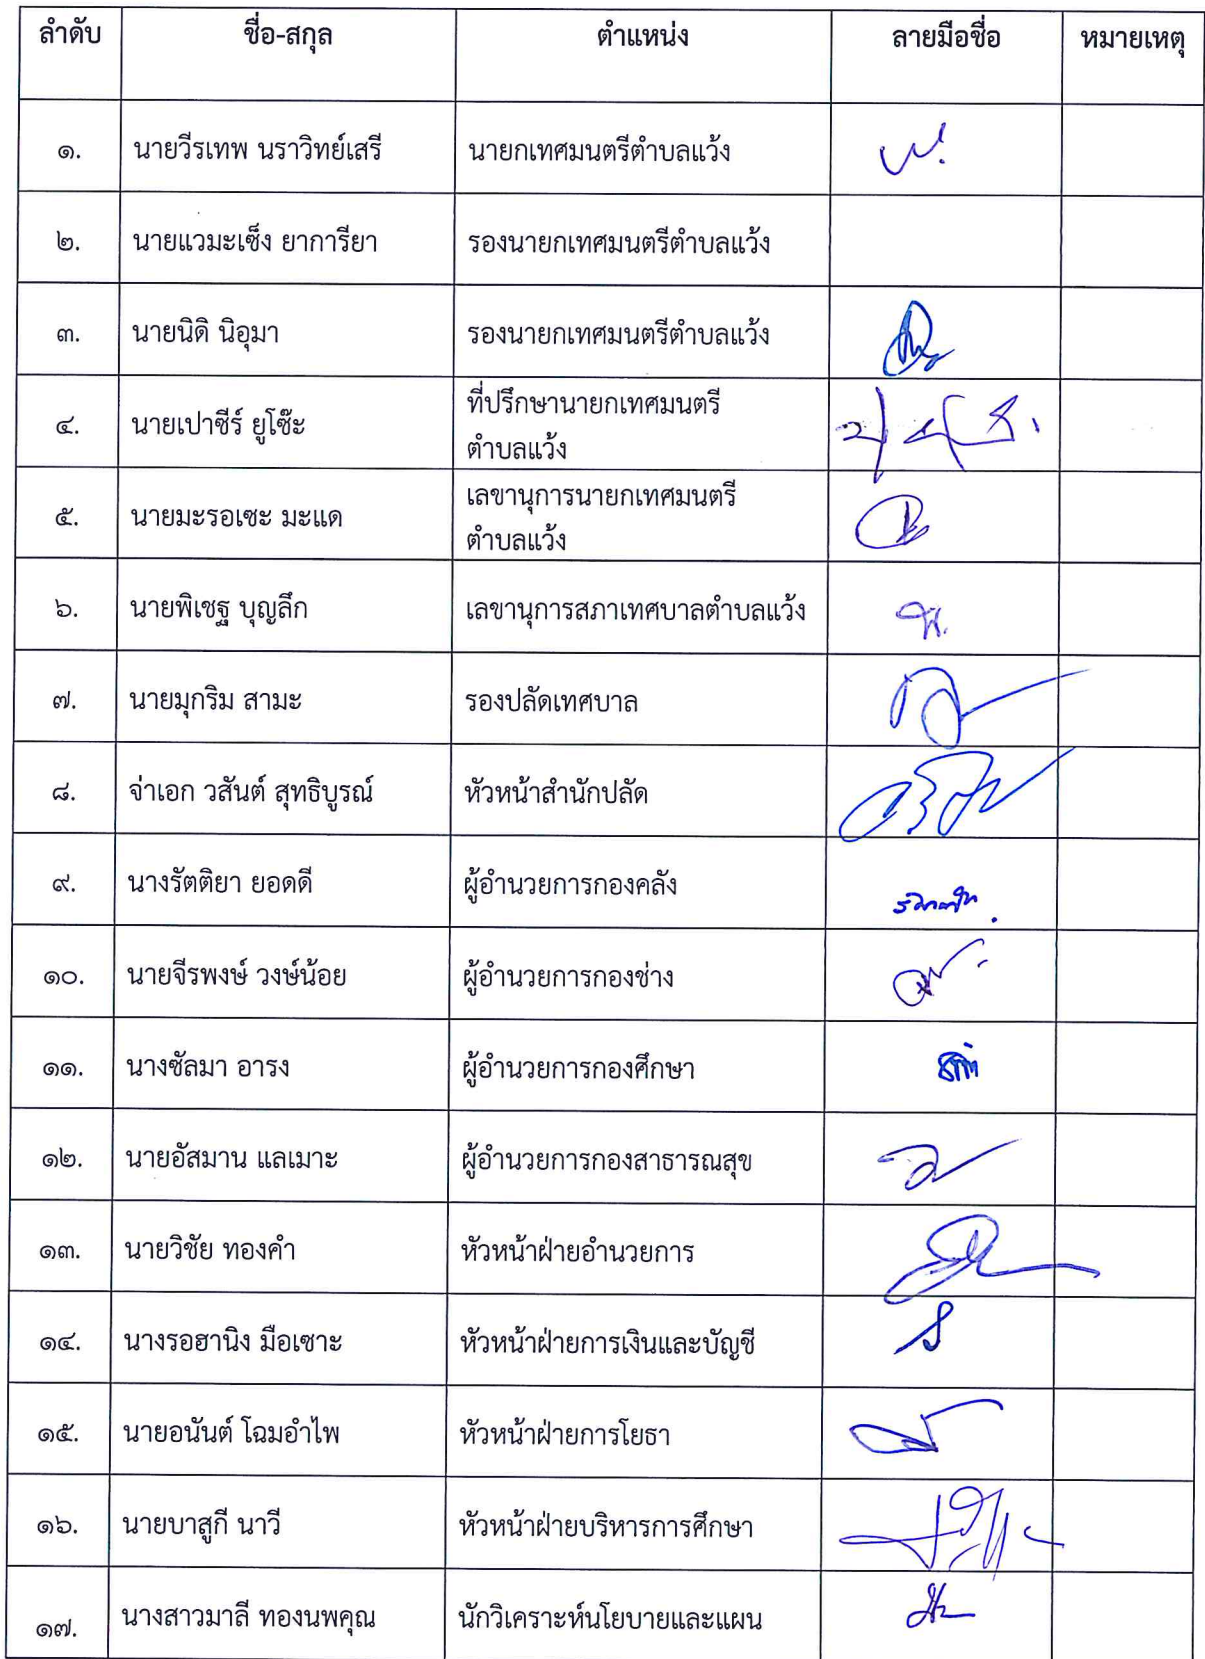 ลำดับ ชื่อ-สกุล ตำแหน่ง ลายมือชื่อ หมายเหตุ
๑. นายวีรเทพ นราวิทย์เสรี นายกเทศมนตรีตำบลแว้ง
๒. นายแวมะเซ็ง ยาการียา รองนายกเทศมนตรีตำบลแว้ง
๓. นายนิดิ นิอุมา รองนายกเทศมนตรีตำบลแว้ง
๔. นายเปาซีร์ ยูโซ๊ะ ที่ปรึกษานายกเทศมนตรี
ตำบลแว้ง
๕. นายมะรอเซะ มะแด เลขานุการนายกเทศมนตรี
ตำบลแว้ง
๖. นายพิเชฐ บุญลึก เลขานุการสภาเทศบาลตำบลแว้ง
๗. นายมุกริม สามะ รองปลัดเทศบาล
๘. จ่าเอก วสันต์ สุทธิบูรณ์ หัวหน้าสำนักปลัด
๙. นางรัตติยา ยอดดี ผู้อำนวยการกองคลัง
๑๐. นายจีรพงษ์ วงษ์น้อย ผู้อำนวยการกองช่าง
๑๑. นางซัลมา อารง ผู้อำนวยการกองศึกษา
๑๒. นายอัสมาน แลเมาะ ผู้อำนวยการกองสาธารณสุข
๑๓. นายวิชัย ทองคำ หัวหน้าฝ่ายอำนวยการ
๑๔. นางรอฮานิง มือเซาะ หัวหน้าฝ่ายการเงินและบัญชี
๑๕. นายอนันต์ โฉมอำไพ หัวหน้าฝ่ายการโยธา
๑๖. นายบาสูกี นาวี หัวหน้าฝ่ายบริหารการศึกษา
๑๗. นางสาวมาลี ทองนพคุณ นักวิเคราะห์นโยบายและแผน